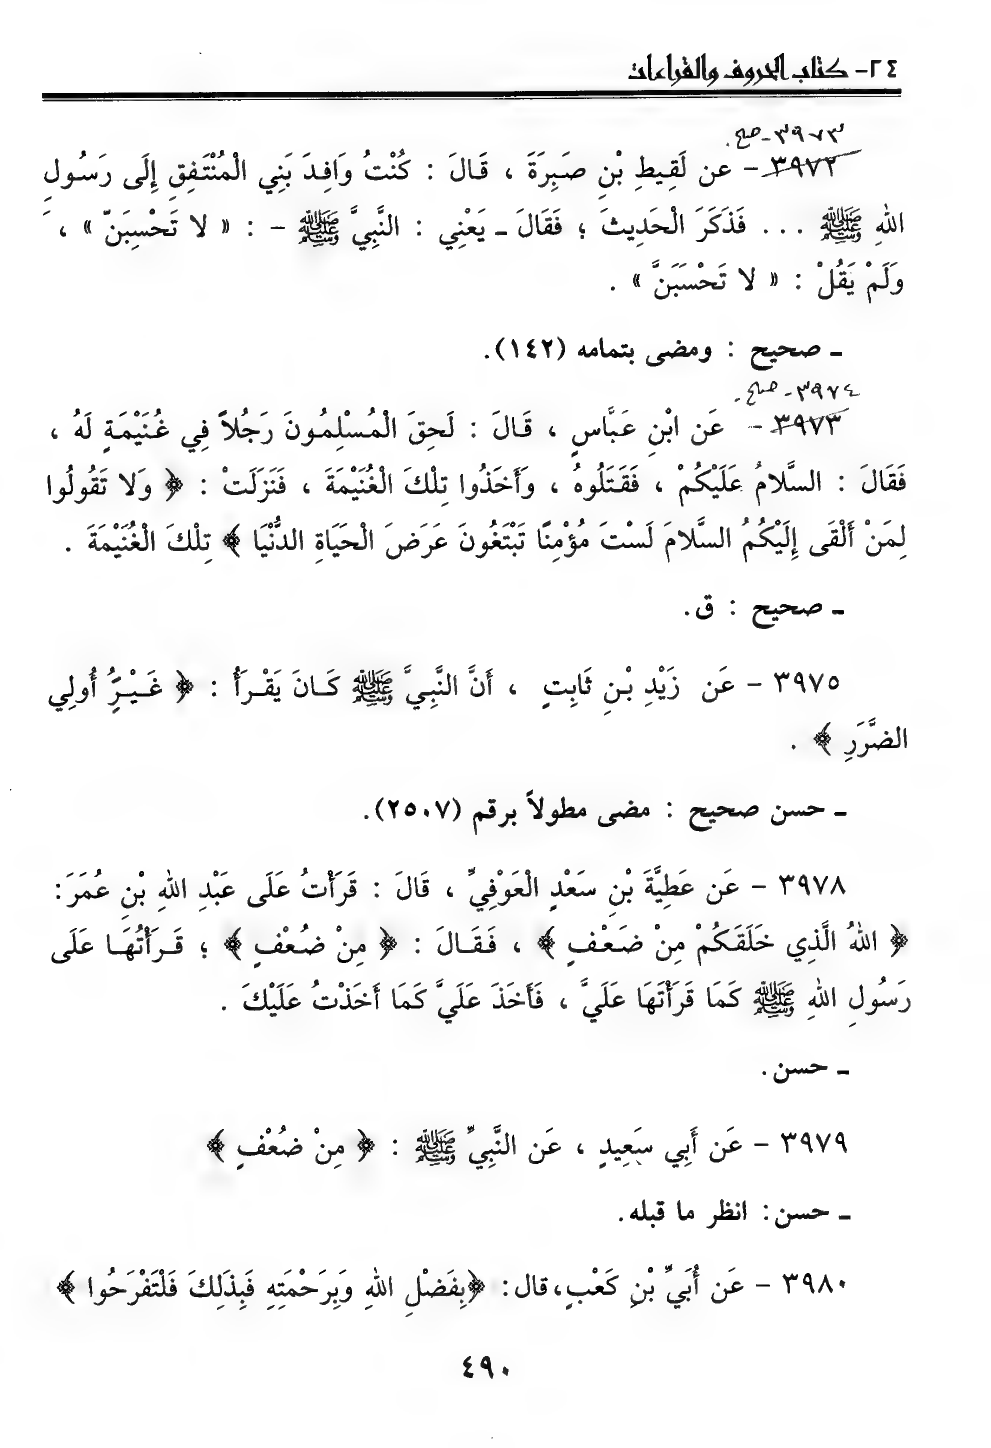 ٢٤- كتاب الحروف والقراءات
٣٩٧٣- صح.
٣٩٧٢ - عن لَقِيطِ بْنِ صَبِرَةَ ، قَالَ : كُنْتُ وَافِدَ بَنِي الْمُنْتَفِقِ إِلَى رَسُولِ
اللهِ ﷺ ... فَذَكَرَ الْحَدِيثَ ؛ فَقَالَ ـ يَعْنِي : النَّبِيَّ ﷺ - : « لا تَحْسِبَنَّ » ،
وَلَمْ يَقُلْ : « لا تَحْسَبَنَّ » .
ـ صحيح : ومضى بتمامه (١٤٢).
٣٩٧٤- صح.
٣٩٧٣ - عَن ابْنِ عَبَّاسٍ ، قَالَ : لَحِقَ الْمُسْلِمُونَ رَجُلاً فِي غُنَيْمَةٍ لَهُ ،
فَقَالَ : السَّلامُ عَلَيْكُمْ ، فَقَتَلُوهُ ، وَأَخَذُوا تِلْكَ الْغُنَيْمَةَ ، فَنَزَلَتْ : ﴿ وَلا تَقُولُوا
لِمَنْ أَلْقَى إِلَيْكُمُ السَّلامَ لَسْتَ مُؤْمِنًا تَبْتَغُونَ عَرَضَ الْحَيَاةِ الدُّنْيَا ﴾ تِلْكَ الْغُنَيْمَةَ .
ـ صحيح : ق.
٣٩٧٥ - عَن زَيْدِ بْنِ ثَابِتٍ ، أَنَّ النَّبِيَّ ﷺ كَانَ يَقْرَأُ : ﴿ غَيْرَُِ أُولِي
الضَّرَرِ ﴾ .
ـ حسن صحيح : مضى مطولاً برقم (٢٥٠٧).
٣٩٧٨ - عَن عَطِيَّةَ بْنِ سَعْدٍ الْعَوْفِيِّ ، قَالَ : قَرَأْتُ عَلَى عَبْدِ اللهِ بْنِ عُمَرَ:
﴿ اللهُ الَّذِي خَلَقَكُمْ مِنْ ضَعْفٍ ﴾ ، فَقَالَ : ﴿ مِنْ ضُعْفٍ ﴾ ؛ قَرَأْتُهَا عَلَى
رَسُولِ اللهِ ﷺ كَمَا قَرَأْتَهَا عَلَيَّ ، فَأَخَذَ عَلَيَّ كَمَا أَخَذْتُ عَلَيْكَ .
ـ حسن.
٣٩٧٩ - عَن أَبِي سَعِيدٍ ، عَن النَّبِيِّ ﷺ : ﴿ مِنْ ضُعْفٍ ﴾
ـ حسن: انظر ما قبله.
٣٩٨٠ - عَن أُبَيِّ بْنِ كَعْبٍ، قال: ﴿بِفَضْلِ اللهِ وَبِرَحْمَتِهِ فَبِذَلِكَ فَلْتَفْرَحُوا ﴾
٤٩٠